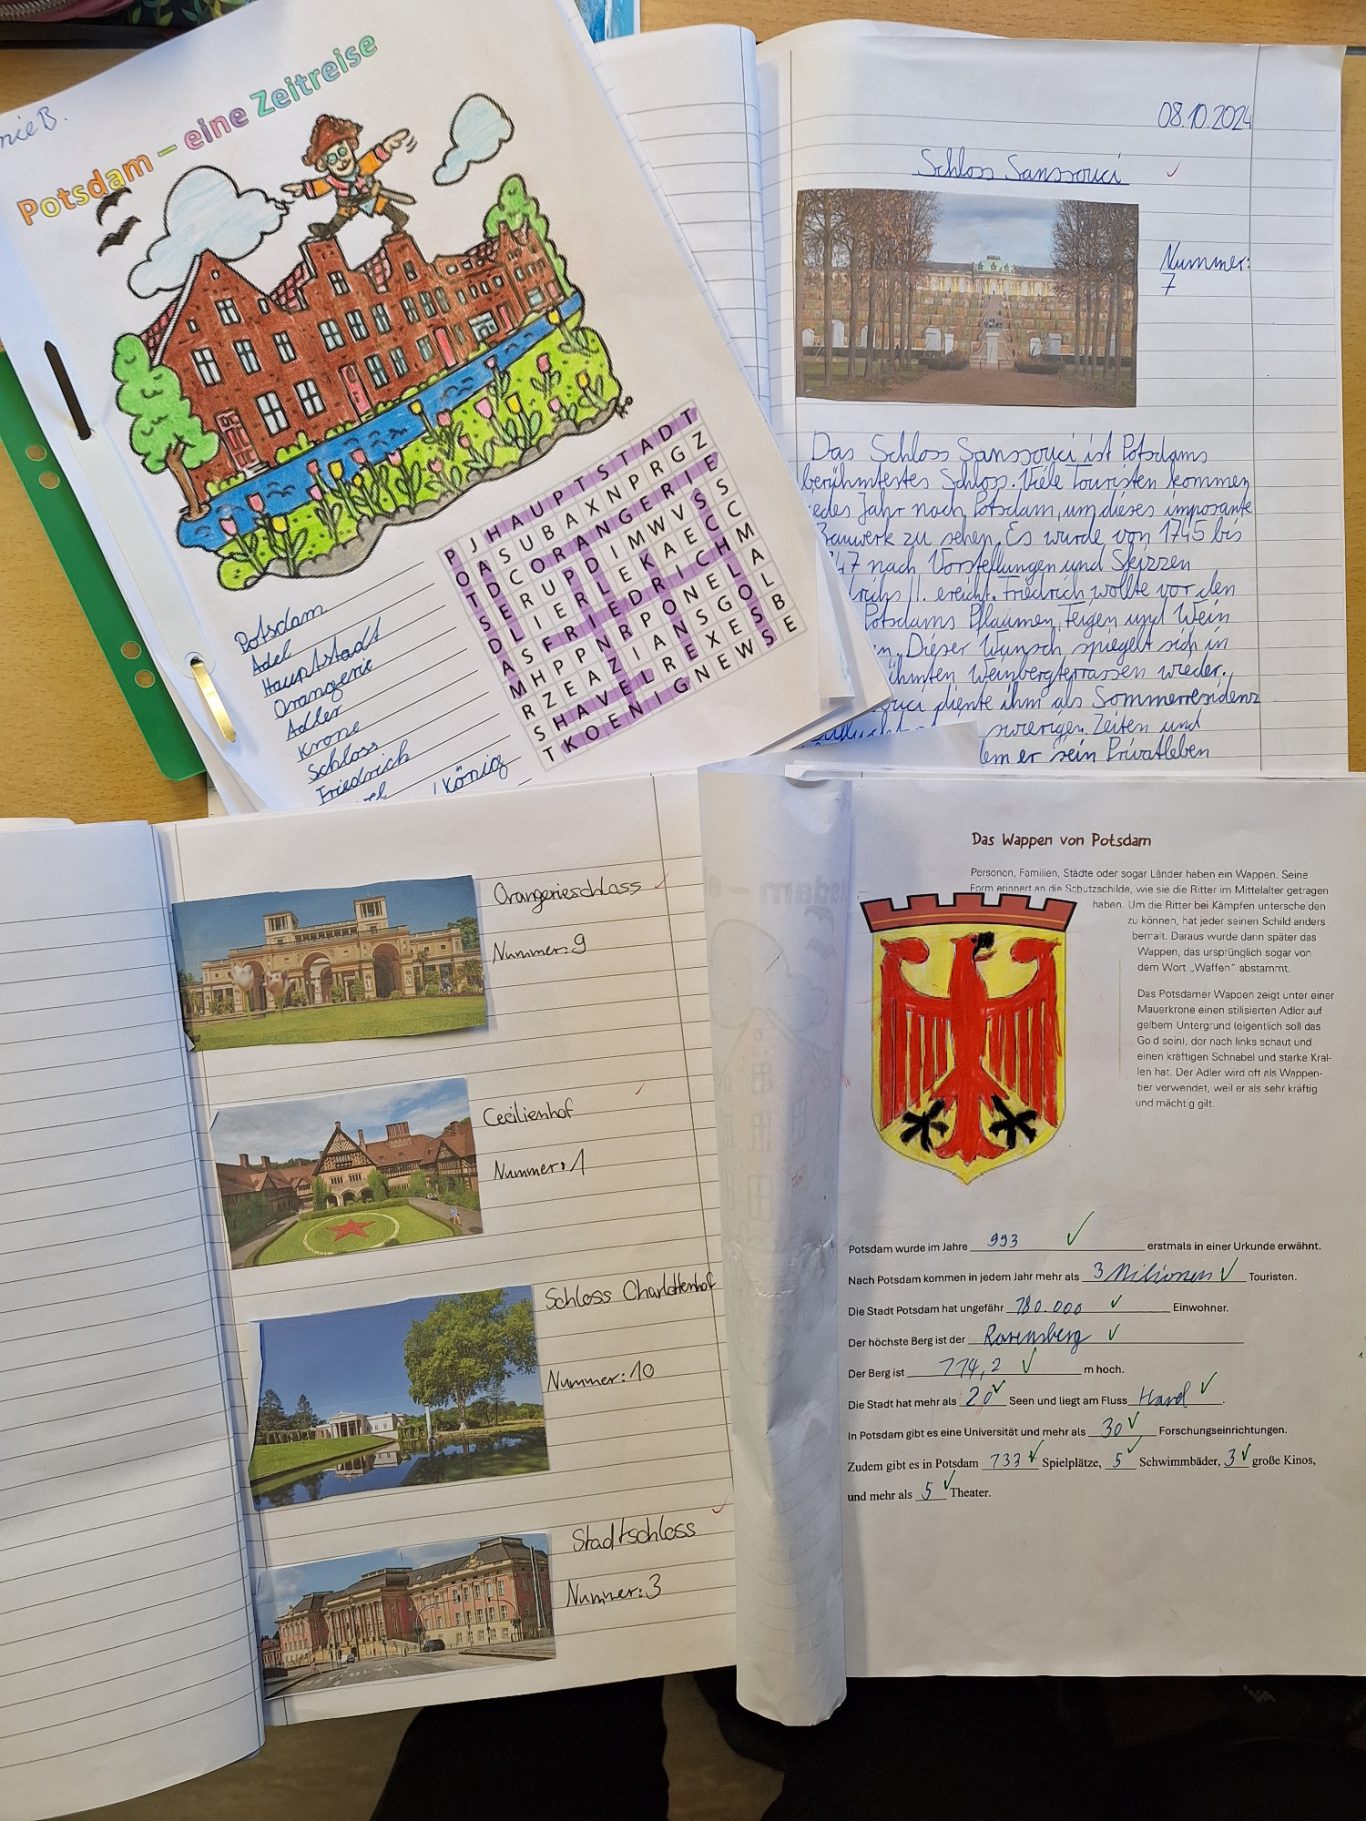 Potsdam – eine Zeitreise
nie B.
PJHAUPTSTADT
OASUBAXNPRGZ
TDCORANGERIE
SERUPDIMWVSS
DLIERLEKAECC
ASFRIEDRICHM
MHPPNRPONELA
RZEAZIANSGOL
SHAVELREXESB
TKOENIGNEWSE
Potsdam
Adel
Hauptstadt
Orangerie
Adler
Krone
Schloss
Friedrich
König
08.10.2024
Schloss Sanssouci
Nummer:
7
Das Schloss Sanssouci ist Potsdams
berühmtestes Schloss. Viele Touristen kommen
jedes Jahr nach Potsdam, um dieses imposante
Bauwerk zu sehen. Es wurde von 1745 bis
47 nach Vorstellungen und Skizzen
drichs II. ereicht. Friedrich wollte vor den
Potsdams Pflaumen, Feigen und Wein
n. Dieser Wunsch spiegelt sich in
ühmten Weinbergterrassen wieder.
ouci diente ihm als Sommerresidenz
swerigen Zeiten und
dem er sein Privatleben
Orangerieschloss
Nummer: 9
Cecilienhof
Nummer: 1
Schloss Charlottenhof
Nummer: 10
Stadtschloss
Nummer: 3
Das Wappen von Potsdam
Personen, Familien, Städte oder sogar Länder haben ein Wappen. Seine
Form erinnert an die Schutzschilde, wie sie die Ritter im Mittelalter getragen
haben. Um die Ritter bei Kämpfen unterscheiden
zu können, hat jeder seinen Schild anders
bemalt. Daraus wurde dann später das
Wappen, das ursprünglich sogar von
dem Wort „Waffen" abstammt.
Das Potsdamer Wappen zeigt unter einer
Mauerkrone einen stilisierten Adler auf
gelbem Untergrund (eigentlich soll das
Gold sein), der nach links schaut und
einen kräftigen Schnabel und starke Kral-
len hat. Der Adler wird oft als Wappen-
tier verwendet, weil er als sehr kräftig
und mächtig gilt.
Potsdam wurde im Jahre 993 erstmals in einer Urkunde erwähnt.
Nach Potsdam kommen in jedem Jahr mehr als 3 Milionen Touristen.
Die Stadt Potsdam hat ungefähr 180.000 Einwohner.
Der höchste Berg ist der Ravensberg
Der Berg ist 114,2 m hoch.
Die Stadt hat mehr als 20 Seen und liegt am Fluss Havel.
In Potsdam gibt es eine Universität und mehr als 30 Forschungseinrichtungen.
Zudem gibt es in Potsdam 133 Spielplätze, 5 Schwimmbäder, 3 große Kinos,
und mehr als 5 Theater.